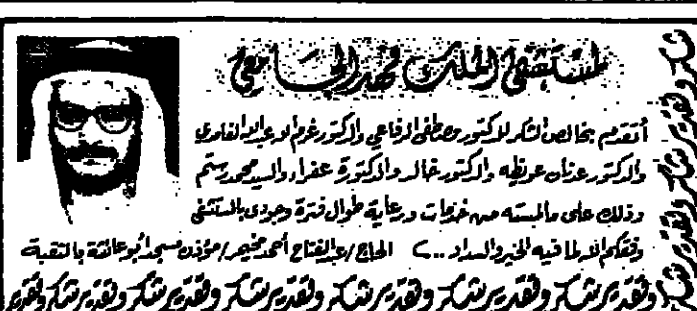 لمستشفى الملك فهد الجامعي
أتقدم بخالص الشكر للدكتور مصطفى الرفاعي والدكتور غرم الله عبدالله الغامدي
والدكتور عدنان عويضه والدكتور خالد والدكتورة عفراء والسيد محمد رستم
وذلك على مالمسته من خدمات ورعاية طوال فترة وجودي بالمستشفى
وفقكم الله لما فيه الخير والسداد ..
الحاج / عبدالفتاح أحمد مخيمر / مؤذن مسجد أبو عائشة بالثقبة
شكر وتقدير شكر وتقدير شكر وتقدير شكر وتقدير شكر وتقدير شكر وتقدير
شكر وتقدير شكر وتقدير شكر